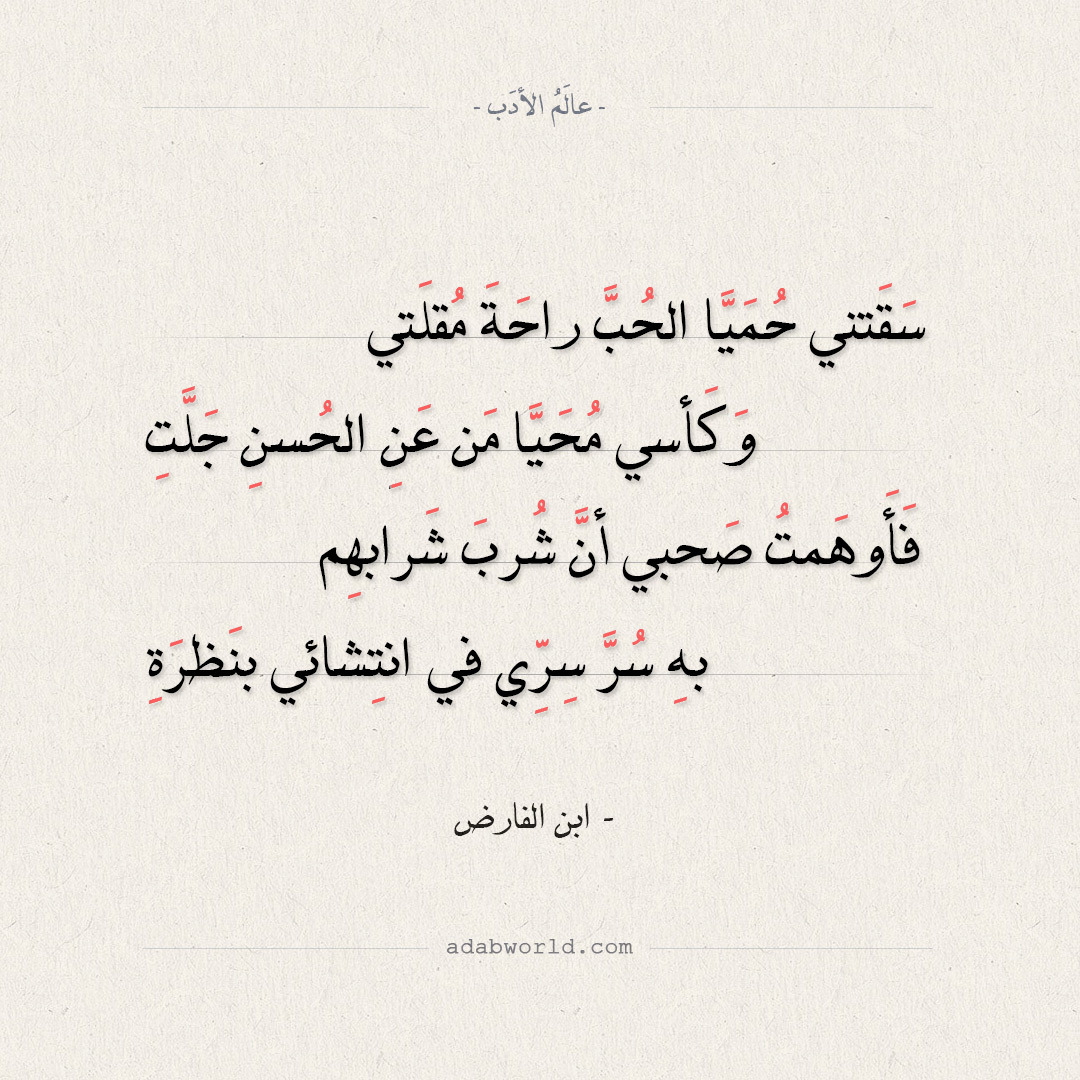 - عالَمُ الأدَب -
سَقَتني حُمَيَّا الحُبَّ راحَةَ مُقلَتي
وَكَأسي مُحَيَّا مَن عَنِ الحُسنِ جَلَّتِ
فَأَوهَمتُ صَحبي أنَّ شُربَ شَرابهِم
بهِ سُرَّ سِرِّي في انتِشائي بنَظرَةِ
- ابن الفارض
adabworld.com